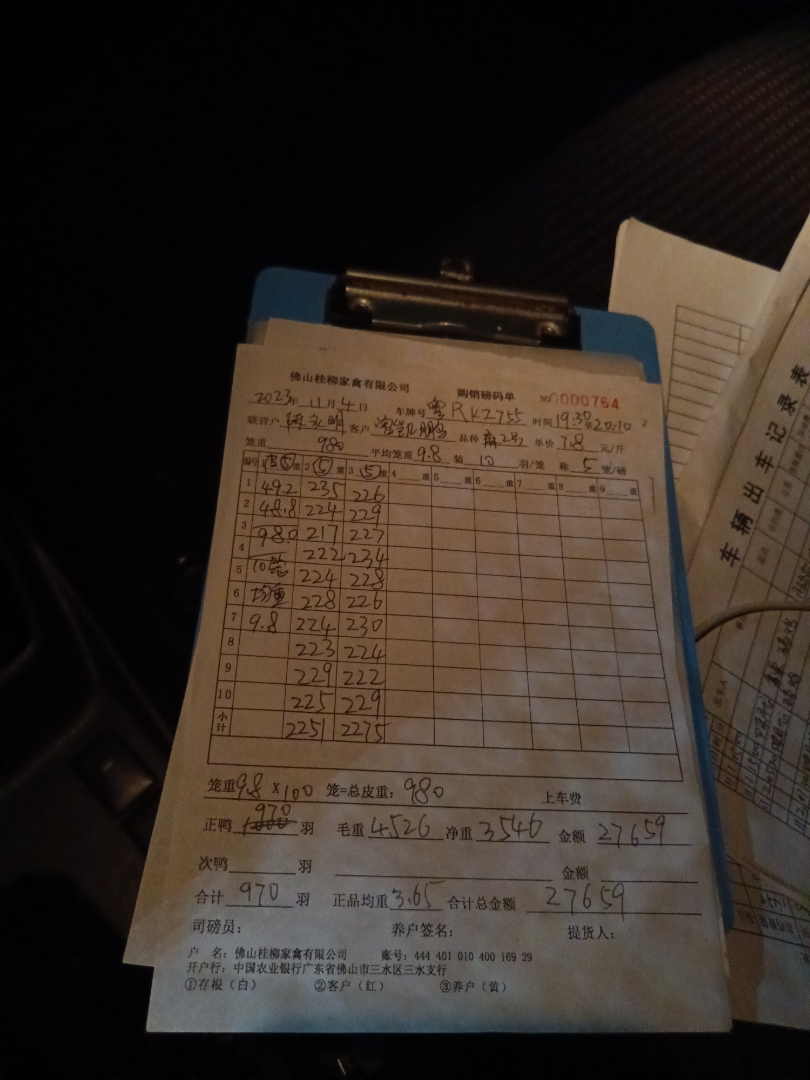 佛山桂柳家禽有限公司 购销磅码单 NO 0000764
2023年 11月 4日 车牌号 粤RK2755 时间 19:30至20:10
联营户 客户 凯鹏 品种 麻2号 单价 7.8 元/斤
笼重 980 平均笼重 9.8 装 10 羽/笼 称 5 笼/磅
编号 1 ⑤ 重 2 ⑤ 重 3 ⑤ 重 4 重 5 重 6 重 7 重 8 重 9 重
1 49.2 235 226
2 48.8 224 229
3 98.0 217 227
4 222 234
5 10笼 224 228
6 均重 228 226
7 9.8 224 230
8 223 224
9 229 222
10 225 229
小计 2251 2275
笼重 9.8 X 100 笼=总皮重: 980 上车费
正鸭 970 羽 毛重 4526 净重 3546 金额 27659
次鸭 羽 金额
合计 970 羽 正品均重 3.65 合计总金额 27659
司磅员: 养户签名: 提货人:
户 名: 佛山桂柳家禽有限公司 账号: 444 401 010 400 169 29
开户行: 中国农业银行广东省佛山市三水区三水支行
①存根（白） ②客户（红） ③养户（黄）
车辆出车记录表